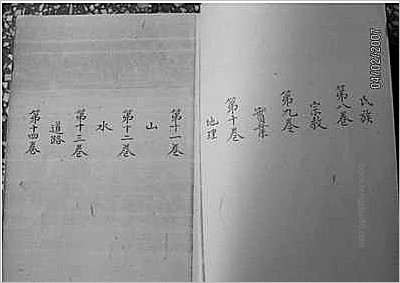 氏族
第八卷
宗教
第九卷
實業
第十卷
地理
第十一卷
山
第十二卷
水
第十三卷
道路
第十四卷
04/02/2007